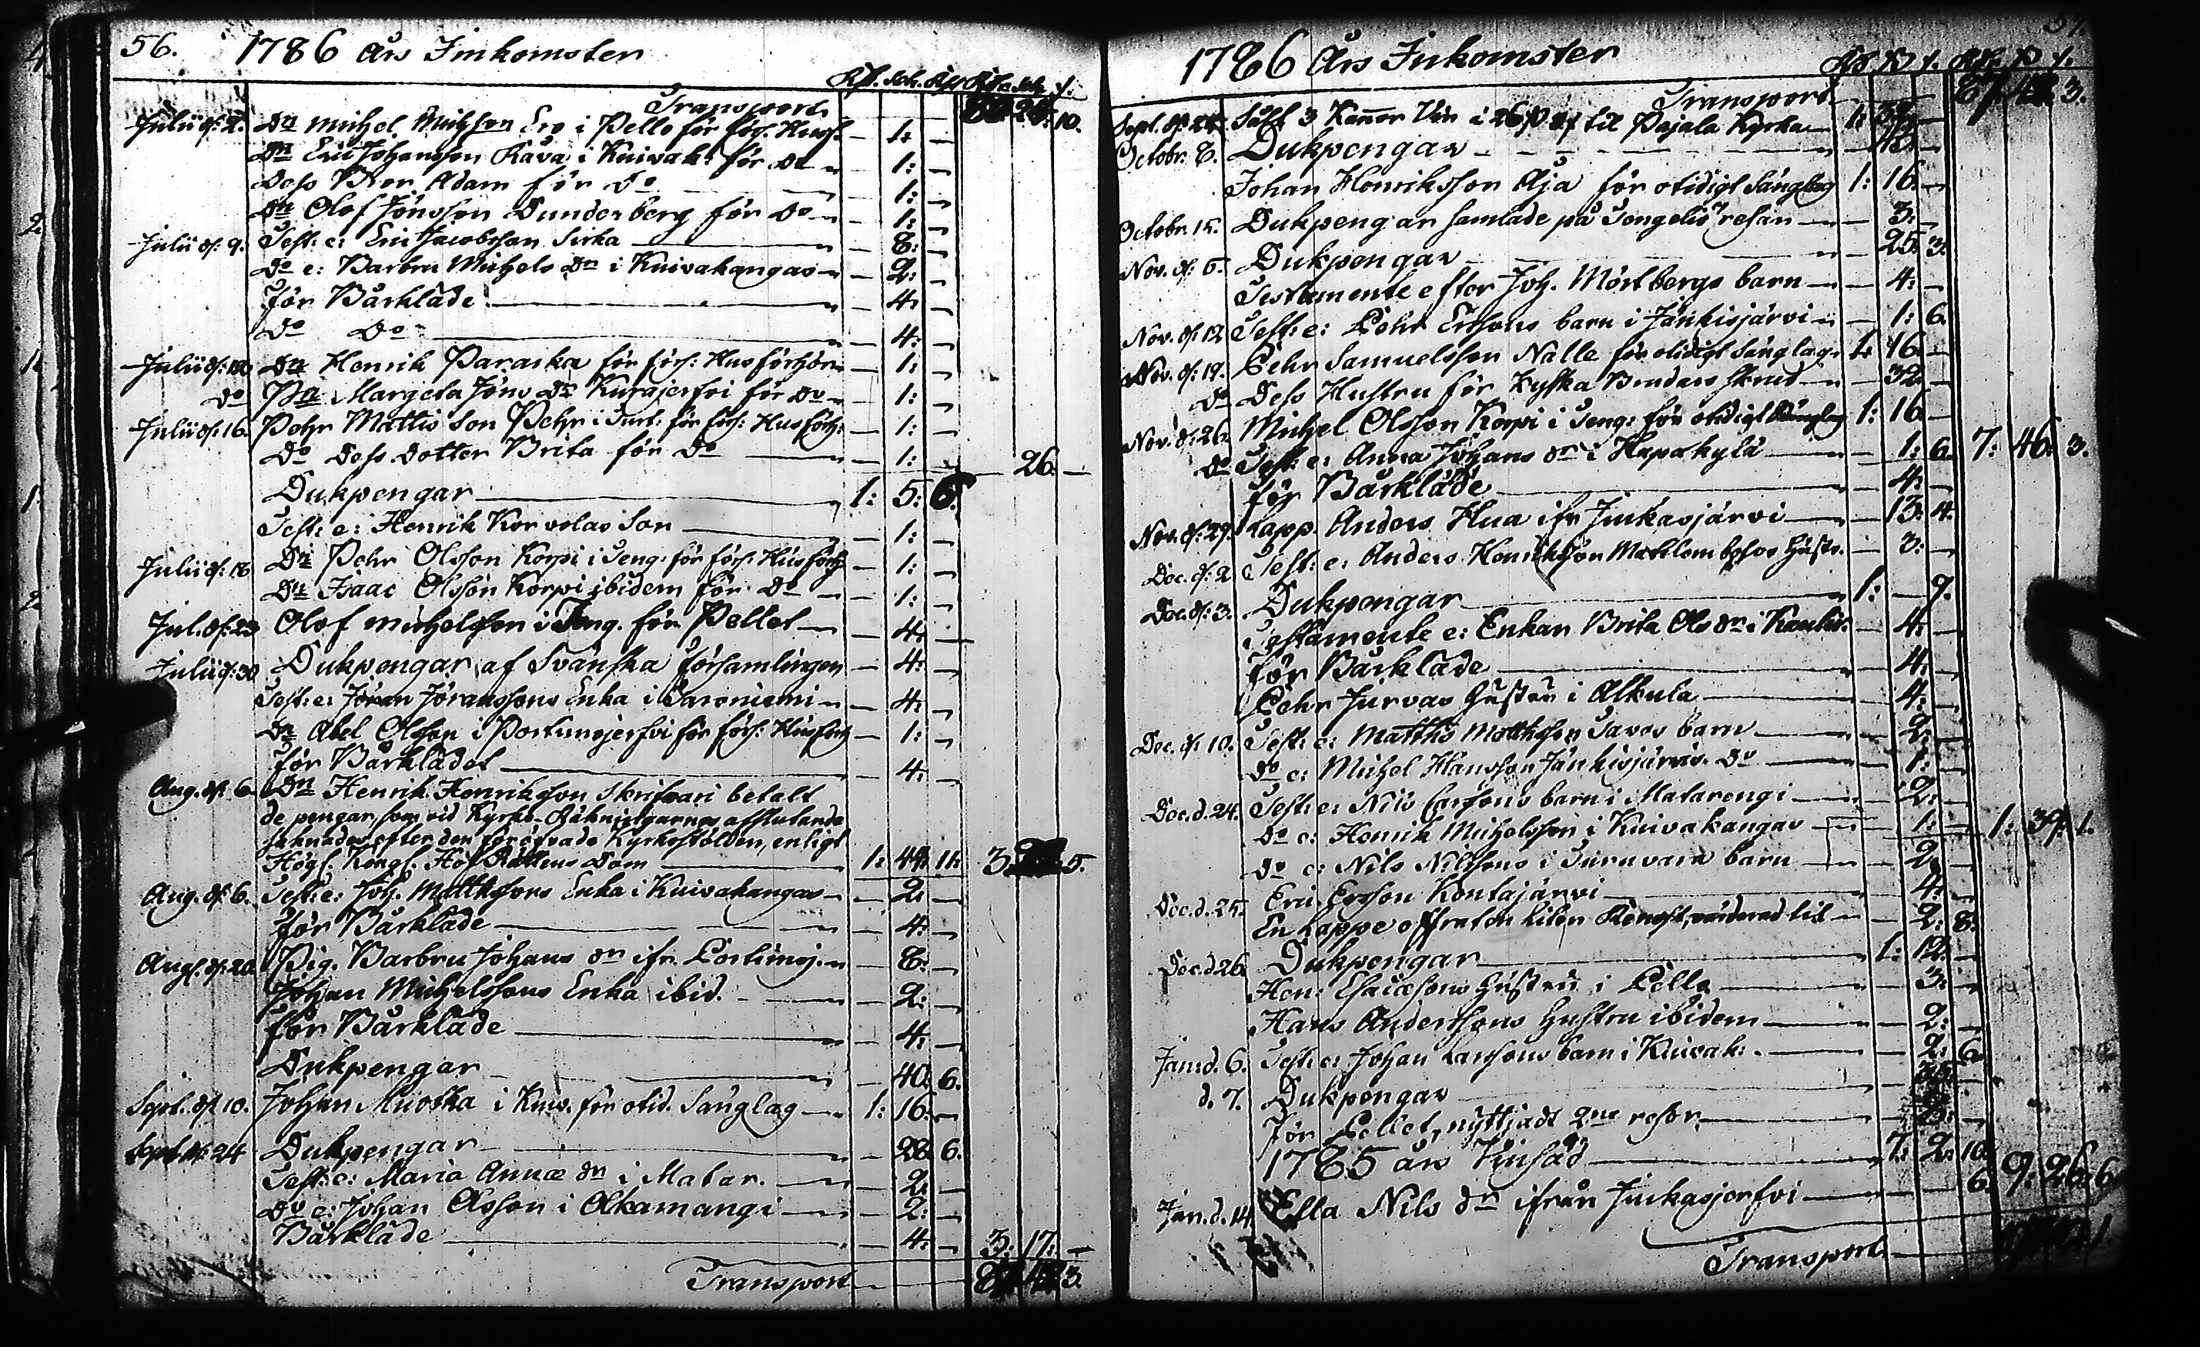 56. 1786 års Inkomster
Rd. sch. Transport 10.
Julii d: 2. Dn Michel Michelson Ero i Pello för förs: Husf. — 1: —
Dn Eric Johansson Kava i Kuivak: för Do — 1: —
Dess Bror Adam för Do — 1: —
Dn Olof Jönsson Dunderberg för Do — 1: —
Julii d: 9. Test: e: Eric Jacobsson Sirka — 8: —
Do e: Barbru Michels Dr i Kuivakangas — 2: —
för Bårkläde — 4: —
Do Do — 4: —
Julii d: Dn Henrik Paraska för förs: Husförhör — 1: —
Do Pn Margeta Jöns Dr Kurajerfvi för Do — 1: —
Julii d: 16. Pehr Mattis Son Pehr i för förs: Husförh: — 1: —
Do Dess Dotter Brita för Do — 1: — 26. —
Dukpengar — 1: 5: 6.
Test: e: Henrik Korvolas Son — 1: —
Julii d: 16 Dn Pehr Olsson Korpi i Teng: för förs: Husförh: — 1: —
Dn Isaac Olsson Korpi ibidem för Do — 1: —
Jul. d: 23 Olof Michelsson i Teng. för Pellet — 4: —
Julii d: 30 Dukpengar af Svänska församlingen — 4: —
Test: e: Jöran Jöranssons Enka i Saroniemi — 4: —
Dn Abel Olsson i Portimojerfvi för förs: Husförh — 1: —
för Bårklädet — 4: —
Aug. d: 6 Dn Henrik Henriksson Skrifvari betalt
de pengar, som vid Kyrko-Räkningarnas afslutande
saknades efter den föröfvade Kyrkostölden, enligt
Högl. Kongl. Hof Rättens Dom — 1: 44: 11. 3 5.
Aug. d: 6. Test: e: Joh. Matthssons Enka i Kuivakangas — 2: —
för Bårkläde — 4: —
Aug. d: 20 Pig. Barbru Johans dr ifr. Portimoj. — 8: —
Johan Michelssons Enka ibid. — 2: —
för Bårkläde — 4: —
Dukpengar — 40: 6.
Sept. d: 10. Johan Muotka i Kuiv. för otid. Sänglag — 1: 16: —
Sept. d: 24 Dukpengar — 28: 6.
Test: e: Maria Annæ dr i Matar. — 2: —
Do e: Johan Olsson i Alkamangi — 2: —
Bårkläde — 4: — 3: 17: —
Transport 3.
1786 Års Inkomster
Transport 3.
Sept. d: 24 Sålt 3 Kannor Vin i til Pajala Kyrka — 1:
Octobr. 8. Dukpengar —
Johan Henriksson Äja för otidigt Sänglag 1: 16. —
Octobr. 15. Dukpengar samlade på Tengelis resan — 3: —
Nov. d: 5. Dukpengar — 25: 3.
Testamente efter Joh. Mörtbergs barn — 4: —
Nov. d: 12 Test: e: Pehr Ersons barn i Jänkisjärvi — 1: 6.
Nov. d: 19. Pehr Samuelsson Nalle för otidigt Sänglag 1: 16. —
Do Dess Hustru för Kyrko Brudars skrud — 32. —
Nov. d: 26 Michel Olsson Korpi i Teng: för otidigt Sänglag 1: 16. —
Do Test: e: Anna Johans dr i Hapakylä — 1: 6. 7: 46: 3.
för Bårkläde — 4: —
Nov. d: 29. Lapp. Anders Hua ifr. Juckasjärvi — 13: 4.
Dec. d: 2 Test: e: Anders Henriksson hustr. — 3: —
Dec. d: 3. Dukpengar — 1: — 9.
Testamente e: Enkan Brita Ols dr i — 4: —
för Bårkläde — 4: —
Pehr Jurvas hustru i Alkula — 4: —
Dec. d: 10. Test: e: Matths Matthsson Tavos barn — 2: —
Do e: Michel Hansson Jänkisjärvis Do — 1: —
Dec. d. 24. Test: e: Nils Larssons barn i Matarengi — 2: —
Do e: Henrik Michelsson i Kuivakangas — 1: — 1: 39: 1.
Do e: Nils Nilssons i Turuvara barn — 2: —
Dec. d. 25. Eric Ersson Kontajärvi — 4: —
En Lappe offrat en liten Renost, värderad til — 2: 8.
Dec. d 26. Dukpengar — 1: 12: —
Hen: Esaiæsons hustru i Pello — 3: —
Hans Anderssons hustru ibidem — 2: —
Jan. d. 6. Test: e: Johan Larssons barn i Kuivak: — 2: 6.
d. 7. Dukpengar —
För Pellet, nyttjadt 2ne resor —
1785 års Vinsäd — 7: 2: 10.
Jan. d. 14. Ella Nils dr ifrån Juckasjerfvi — 6. 9: 26: 6
Transport — 1